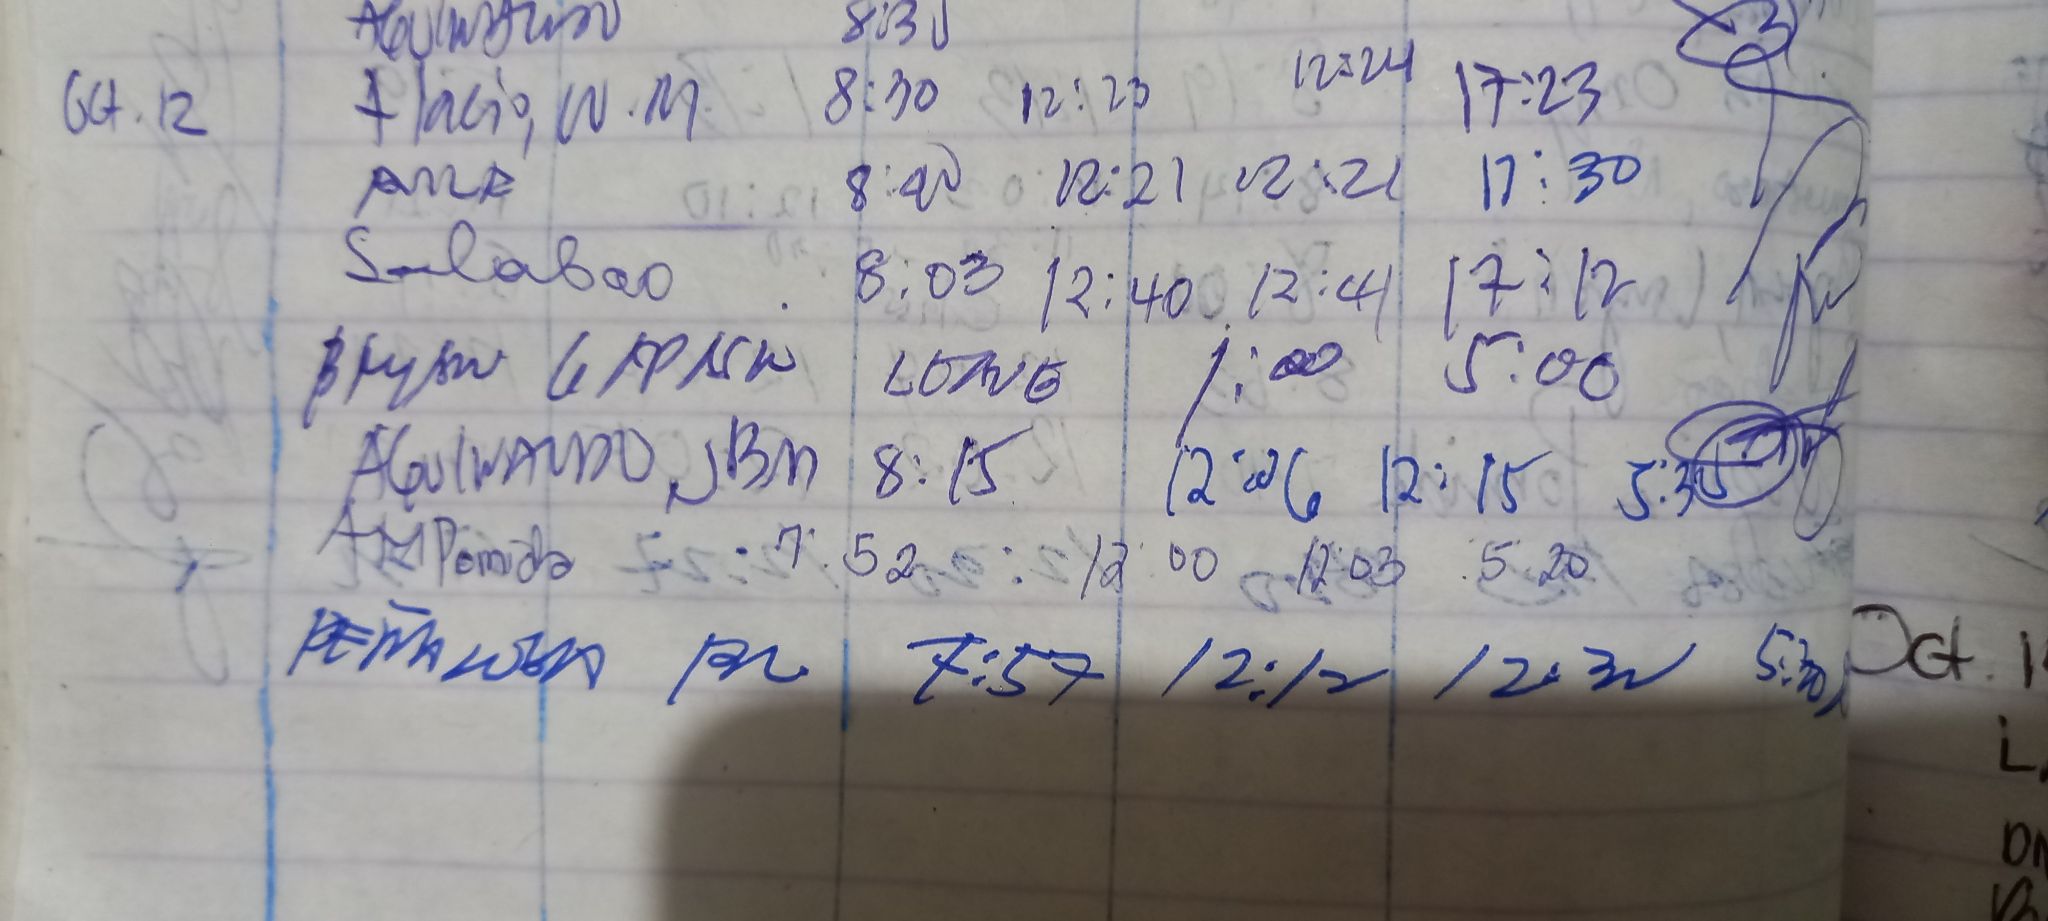 AGUINALDO 8:30
Oct. 12 Flacio, W.M. 8:30 12:23 12:24 17:23
8:40 12:21 12:21 17:30
Salabao 8:03 12:40 12:41 17:12
BRYAN GAPASIN LEAVE 1:00 5:00
AGUINALDO, JBM 8:15 12:06 12:15 5:30
7:52 12:00 12:03 5:20
PEÑALOSA 7:57 12:12 12:30 5:30
Oct.